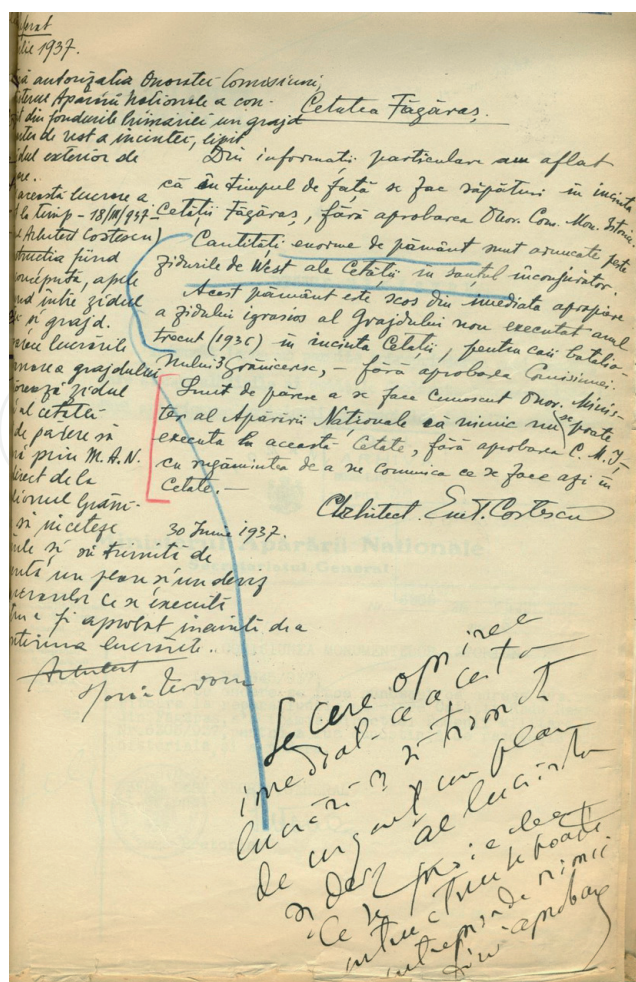 Iulie 1937.
autorizatia Onoratei Comisiuni,
Apărării Naționale a con-
din fondurile Primăriei un grajd
de vest a incintei, lipit
zidul exterior de
această lucrare a
la timp - 18/III/937-
Arhitect Costescu)
fiind
începută, apele
între zidul
și grajd.
lucrările
a grajdului
zidul
al cetății
de părere să
prin M.A.N.
direct de la
Grăni-
să înceteze
și să trimită de
un plan și un deviz
ce se execută
a fi aprobat înainte de a
lucrările.
Arhitect
Cetatea Făgăraș.
Din informații particulare am aflat
că în timpul de față se fac săpături în incinta
Cetății Făgăraș, fără aprobarea Onor. Com. Mon. Istorice.
Cantități enorme de pământ sunt aruncate peste
zidurile de West ale Cetății în șanțul înconjurător.
Acest pământ este scos din imediata apropiere
a zidului igrasios al Grajdului nou executat anul
trecut (1936) în incinta Cetății, pentru caii batalio-
nului 3 Grăniceresc, - fără aprobarea Comisiunei.
Sunt de părere a se face cunoscut Onor. Minis-
ter al Apărării Naționale că nimic nu se poate
executa în această Cetate, fără aprobarea C. M. I-
cu rugămintea de a ne comunica ce se face azi în
Cetate. -
Arhitect. Em. T. Costescu
30 Iunie 1937.
Apărării Naționale
Secretariatul General
Se cere oprirea
imediat-a acestor
lucrări și să trimit
de urgență un plan
și deviz al lucrărilor
Ce se
întrucât nu se poate
întreprinde nimic
fără aprobare